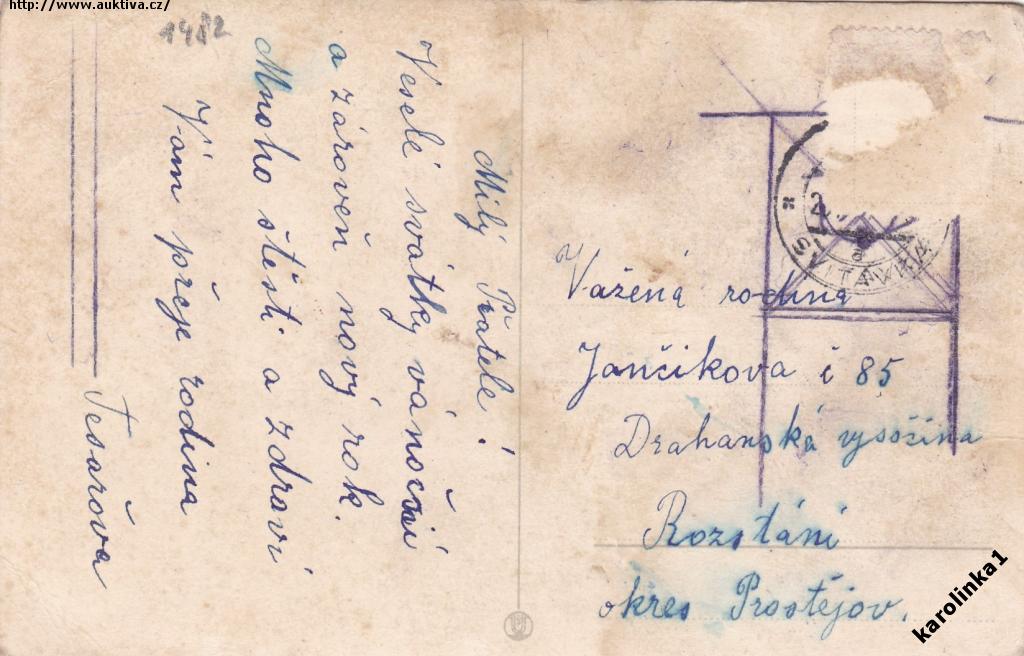 http://www.auktiva.cz/
1482
Milý Přatelé!
Veselé svátky vánoční
a zároveň nový rok.
Mnoho štěsti a zdraví
Vám přeje rodina
Tesařova
SVITÁVKA
Vážená rodina
Jančikova č 85
Drahanská vysočina
Rozstání
okres Prostějov.
karolinka1